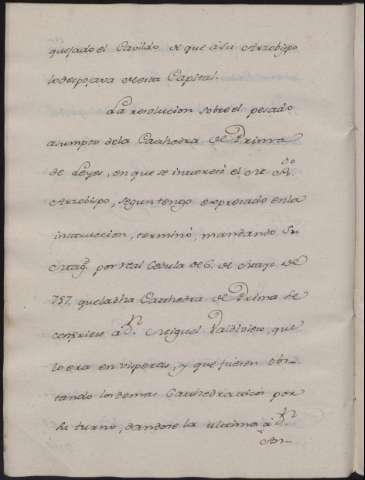 quejado el Cavildo de que a su Arzobispo
lo despojava de esta Capital.
La resolucion sobre el pesado
asumpto de la Cathedra de Prima
de Leyes, en que se interesó el Mt. Rdo
Arzobispo, segun tengo expresado en la
instruccion, terminó, mandando Su
Mag. por Real Cedula de 6. de Mayo de
757. que la dha Cathedra de Prima se
confiriese a Dn. Miguel Valdivieso, que
lo era en visperas, y que fuesen obs-
tando los demas Cathedraticos por
su turno, dandose la ultima a Dn.